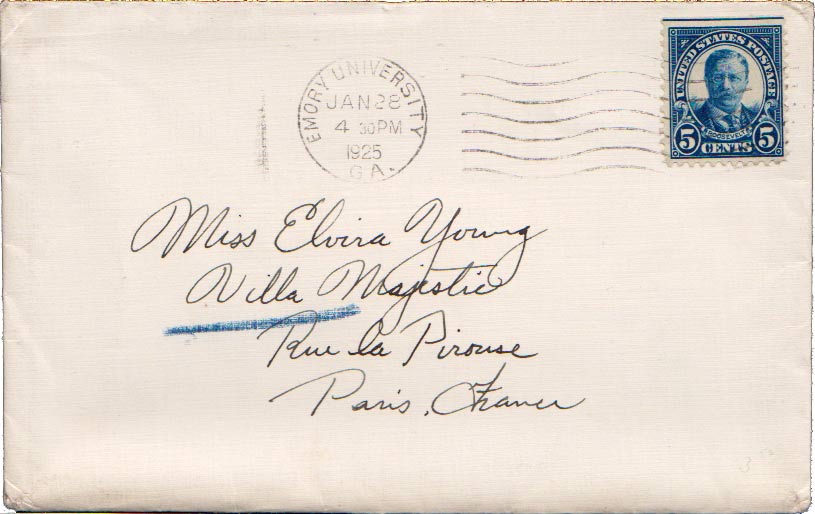 EMORY UNIVERSITY
JAN 28
4 30 PM
1925
GA.
UNITED STATES POSTAGE
ROOSEVELT
5 CENTS 5
Miss Elvira Young
Villa Majestic
Rue la Pirouse
Paris, France